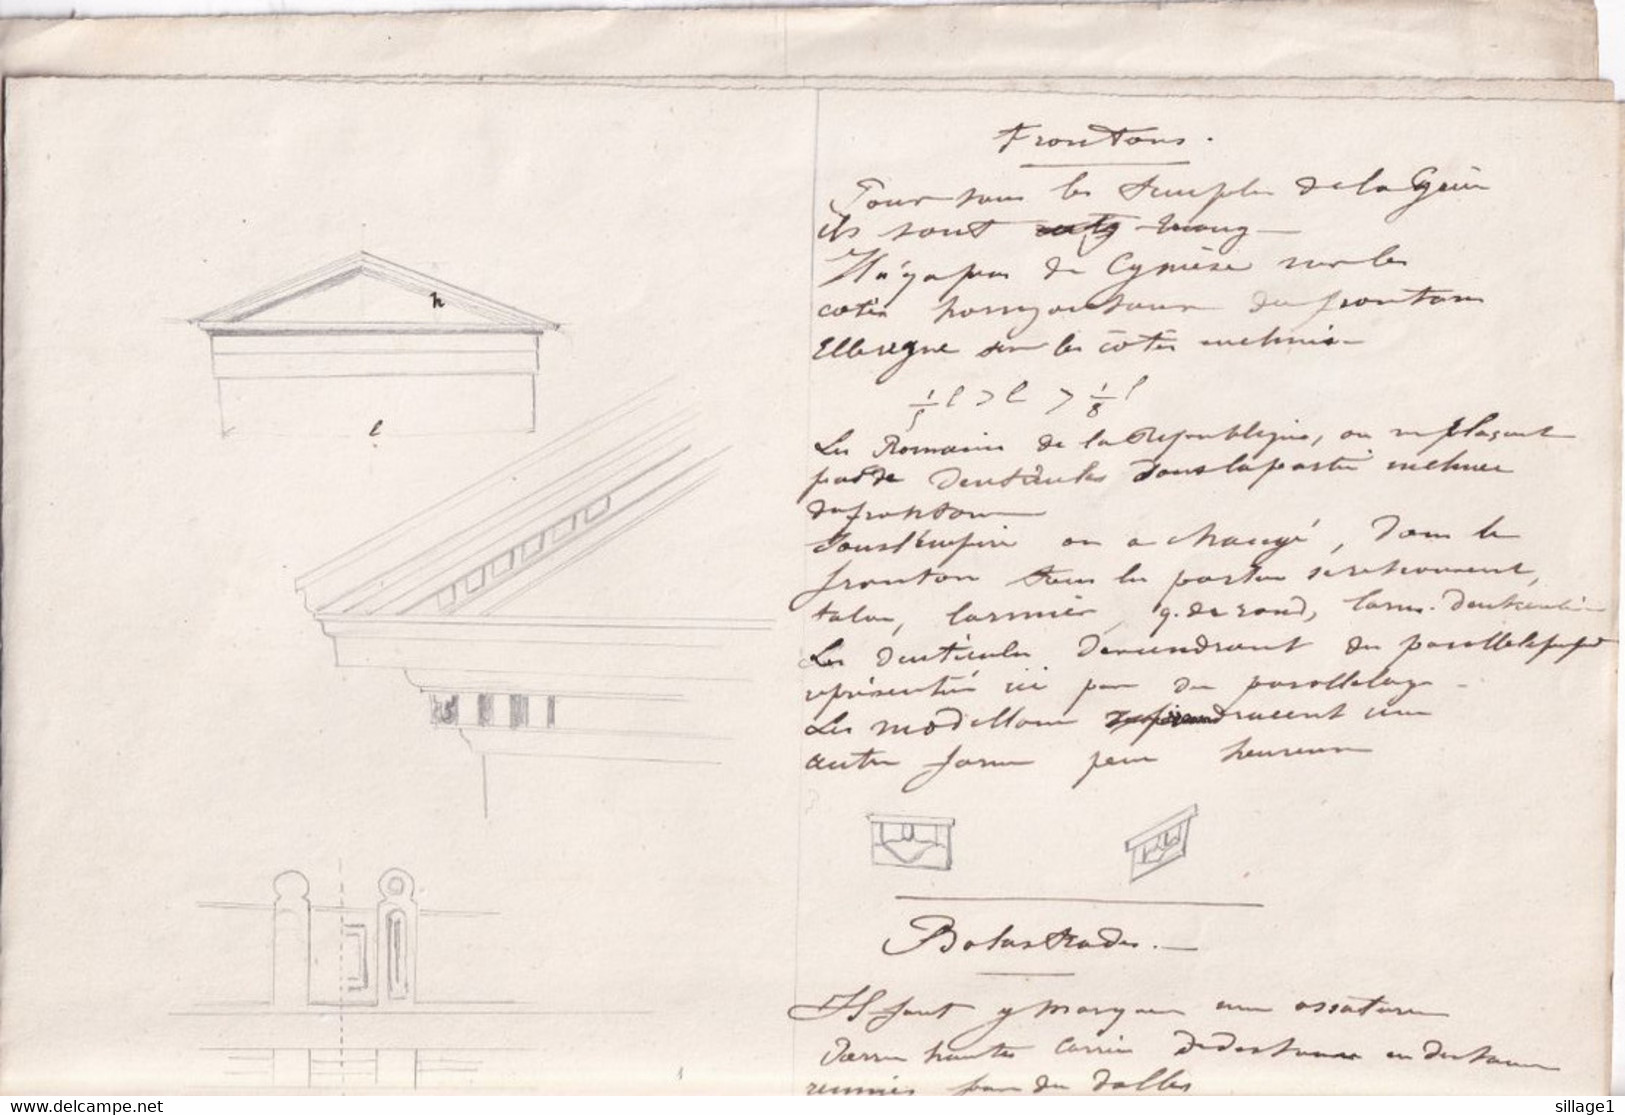 Frontons.
Pour tous les temples de la Grèce
ils sont triang
Il n'y a pas de Cymaise sur les
côtés horizontaux du fronton
Elle règne sur les côtés inclinés
1/5 l > l > 1/8 l
Les Romains de la République, on ne plaçait
pas de Denticules dans la partie inclinée
du fronton
Sous l'Empire on a changé, dans le
fronton tous les parties
talon, larmier, q. de rond, larm. denticul
Les denticules deviendront des parallélépipèd
représentés ici par des parallélog
Les modillons une
autre forme peu heureuse
Balustrades.
Il faut y marquer une ossature
pierres hautes carrées
réunies par des dalles
h
l
sillage1